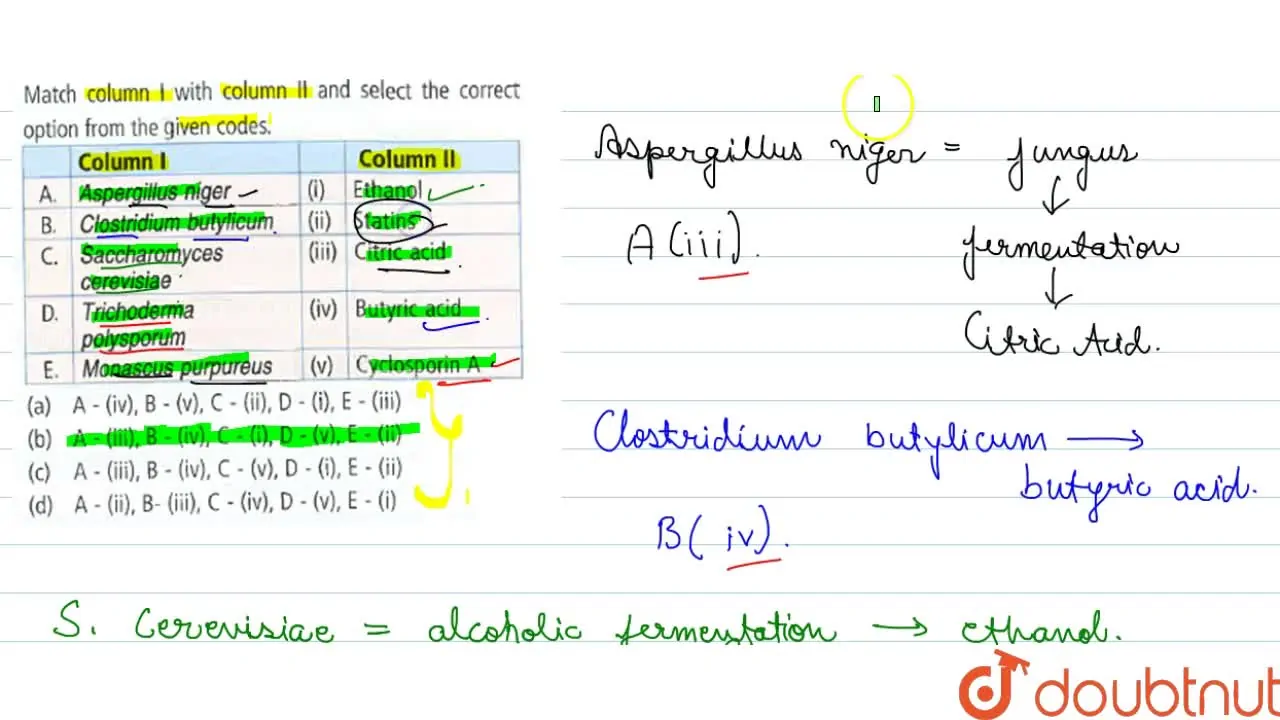 Match column I with column II and select the correct
option from the given codes.
Column I Column II
A. Aspergillus niger (i) Ethanol
B. Clostridium butylicum (ii) Statins
C. Saccharomyces cerevisiae (iii) Citric acid
D. Trichoderma polysporum (iv) Butyric acid
E. Monascus purpureus (v) Cyclosporin A
(a) A - (iv), B - (v), C - (ii), D - (i), E - (iii)
(b) A - (iii), B - (iv), C - (i), D - (v), E - (ii)
(c) A - (iii), B - (iv), C - (v), D - (i), E - (ii)
(d) A - (ii), B- (iii), C - (iv), D - (v), E - (i)
Aspergillus niger = fungus
A (iii).
fermentation
Citric Acid.
Clostridium butylicum →
butyric acid.
B( iv).
S. Cerevisiae = alcoholic fermentation → ethanol.
doubtnut